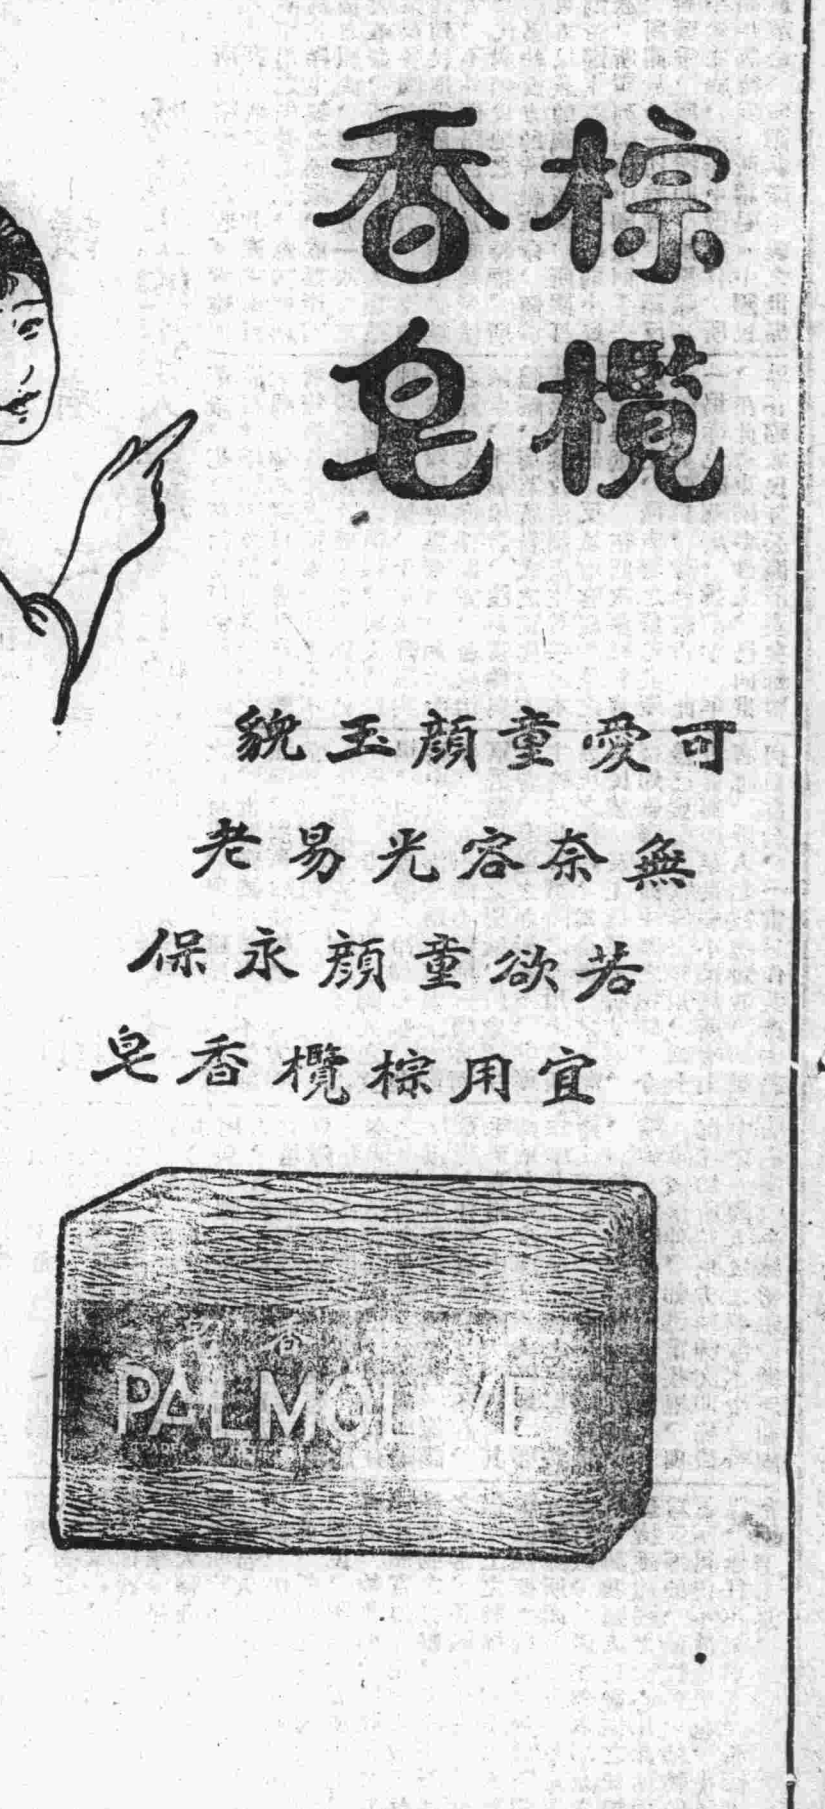 棕欖
香皂
可愛童顏玉貌
無奈容光易老
若欲童顏永保
宜用棕欖香皂
香皂
PALMOLIVE